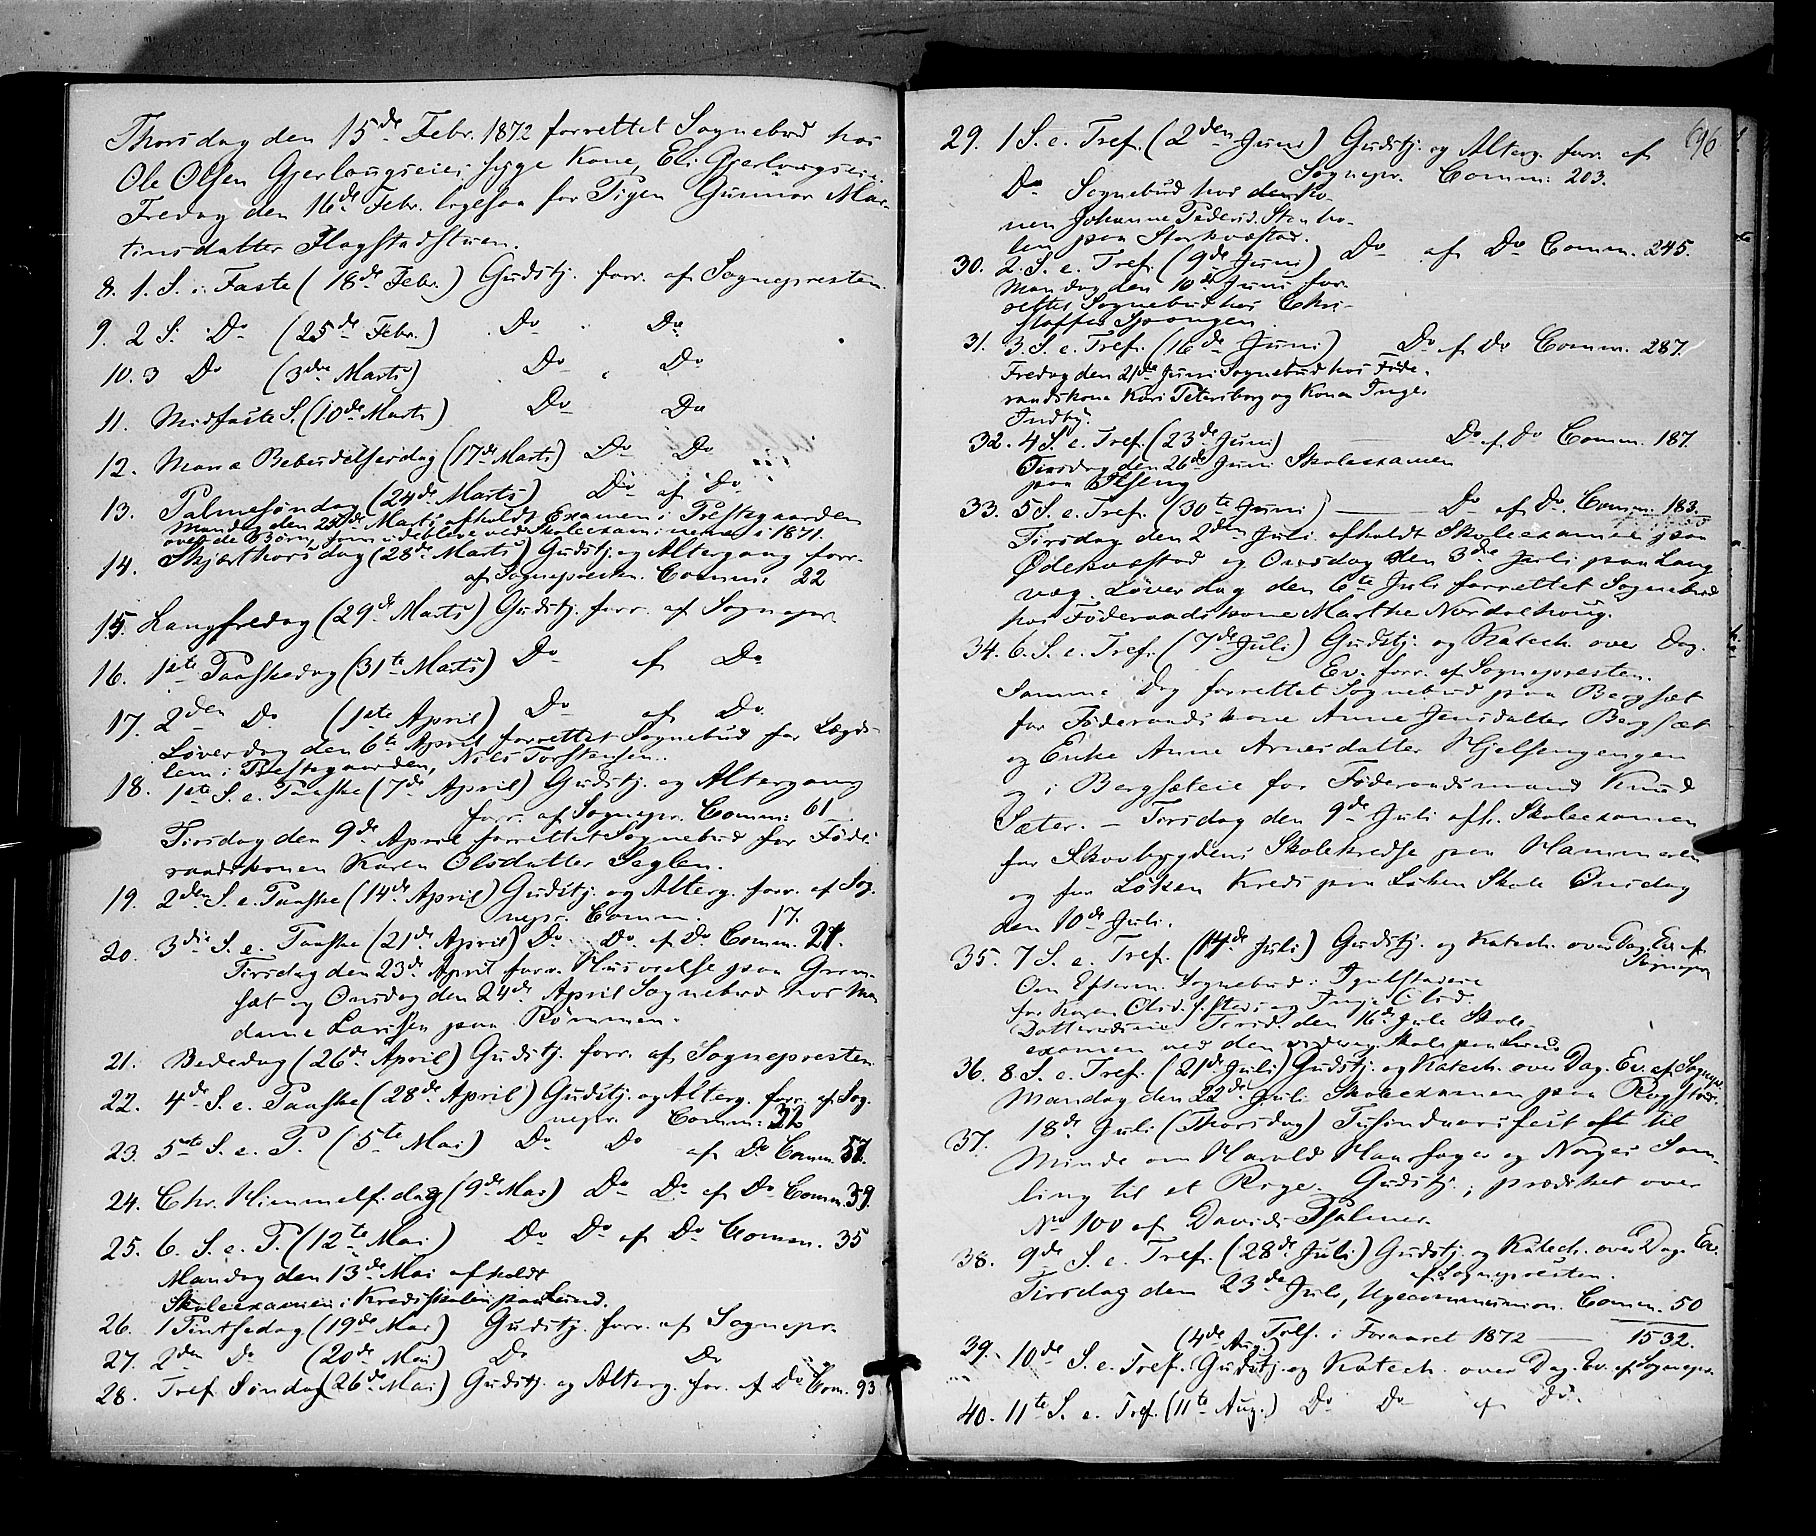 Thorsdag den 15de Febr. 1872 forrettet Sognebud hos
Ole Olsen Gjerlaugseies syge Kone, Eli Gjerlaugseie.
Fredag den 16de Febr. ligesaa for Pigen Gunnor Mar-
tinsdatter Flagstadstuen.
8. 1. S. i Faste (18de Febr.) Gudstj. forr. af Sognepresten.
9. 2 S. Do (25de Febr.) Do Do
10. 3 Do (3die Marts) Do Do
11. Midfaste S. (10de Marts) Do Do
12. Mariæ Bebudelsesdag (17de Marts) Do Do
13. Palmesøndag (24de Marts) Do af Do
Mandag den 25de Marts afholdt Examen i Prestegaarden
over de Børn, som udebleve ved Skoleexaminerne i 1871.
14. Skjærthorsdag (28de Marts) Gudstj. og Altergang forr.
af Sognepresten. Comm: 22
15. Langfredag (29de Marts) Gudstj. forr. af Sognepr.
16. 1ste Paaskedag (31te Marts) Do af Do
17. 2den Do (1ste April) Do af Do
Løverdag den 6te April forrettet Sognebud for Lægds-
lem i Prestegaarden, Nils Torstensen.
18. 1ste S. e. Paaske (7de April) Gudstj. og Altergang
forr. af Sognepr. Comm: 61
Tirsdag den 9de April forrettet Sognebud for Føde-
raadskonen Karen Olsdatter Seglen.
19. 2den S. e. Paaske (14de April) Gudstj. og Alterg. forr. af Sog-
nepr. Comm. 17.
20. 3die S. e. Paaske (21de April) Do Do af Do Comm. 21.
Tirsdag den 23de April forr. Husvielse paa Grøn-
sæt og Onsdag den 24de April Sognebud hos Ma-
dame Larssen paa Rømmen.
21. Bededag (26de April) Gudstj. forr. af Sognepresten.
22. 4de S. e. Paaske (28de April) Gudstj. og Alterg. forr. af Sog-
nepr. Comm: 32
23. 5te S. e. P. (5te Mai) Do Do af Do Comm. 57.
24. Chr. Himmelf.dag (9de Mai) Do Do af Do Comm. 39.
25. 6. S. e. P. (12te Mai) Do Do af Do Comm. 35
Mandag den 13de Mai afholdt
Skoleexamen i Kredsskolen paa Lund.
26. 1 Pintsedag (19de Mai) Gudstj. forr. af Sognepr.
27. 2den Do (20de Mai) Do Do
28. Tref. Søndag (26de Mai) Gudstj. og Alterg. for. af Do Com. 93
696
29. 1 S. e. Tref. (2den Juni) Gudstj. og Alterg. forr. af
Sognepr. Comm: 203.
Do Sognebud hos den Ko-
nen Johanne Pedersd. Stenho-
len paa Storhvæstad.
30. 2. S. e. Tref. (9de Juni) Do af Do Comm. 245.
Mandag den 10de Juni for-
rettet Sognebud hos Chri-
stoffer
31. 3. S. e. Tref. (16de Juni) Do af Do Comm. 287.
Fredag den 21de Juni Sognebud hos Føde-
raadskone Kari Petersborg og Konen Inge
Indby.
32. 4 S. e. Tref. (23de Juni) Do af Do Comm. 187.
Tirsdag den 26de Juni Skoleexamen
paa
33. 5 S. e. Tref. (30te Juni) Do af Do Comm. 183.
Tirsdag den 2den Juli afholdt Skoleexamen paa
Ødehvæstad og Onsdag den 3die Juli paa Lang-
væg. Løverdag den 6te Juli forrettet Sognebud
hos Føderaadskone Marthe Nordalhoug.
34. 6. S. e. Tref. (7de Juli) Gudstj. og Katech. over Dag.
Ev. forr. af Sognepresten.
Samme Dag forrettet Sognebud paa Bergsæt
for Føderaadskone Anne Jensdatter Bergsæt
og Enke Anne Arnesdatter Hjelsengengen
og i Bergsæteie for Føderaadsmand Knud
Sæter. – Tirsdag den 9de Juli afh. Skoleexamen
for Skovbygdens Skolekredse paa Hammeren
og for Løken Kreds paa Løken Skole Onsdag
den 10de Juli.
35. 7 S. e. Tref. (14de Juli) Gudstj. og Katech. over Dag. Ev. af
Sognepr
Om Efterm. Sognebud i
for Karen Olsd. og Inge Olsd.
Tirsd. den 16de Juli Skole
examen ved den Skole paa Lund
36. 8. S. e. Tref. (21de Juli) Gudstj. og Katech. over Dag. Ev. af Sognepr.
Mandag den 22de Juli Skoleexamen paa Rogstad.
37. 18de Juli (Thorsdag) Tusindaarsfest til
Minde om Harald Haarfager og Norges Sam-
ling til et Rige. Gudstj.; prædiket over
No 100 af Davids Psalmer.
38. 9de S. e. Tref. (28de Juli) Gudstj. og Katech. over Dag. Ev.
af Sognepresten.
Tirsdag den 23de Juli, Ugecommunion. Comm. 50
Tils. i Foraaret 1872 — 1532.
39. 10de S. e. Tref. (4de Aug.) Gudstj. og Katech. over Dag. Ev. af Sognepr.
40. 11te S. e. Tref. (11te Aug.) Do Do af Do.